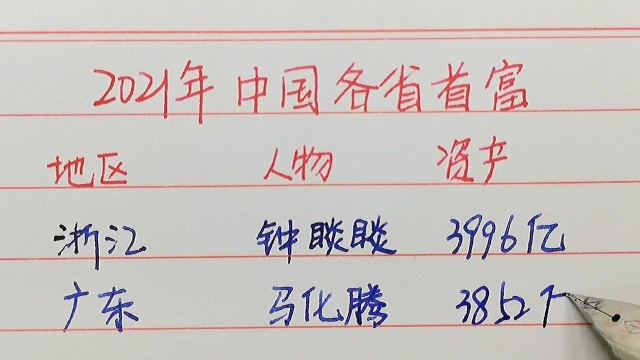 2021年中国各省首富
地区 人物 资产
浙江 钟睒睒 3996亿
广东 马化腾 3852